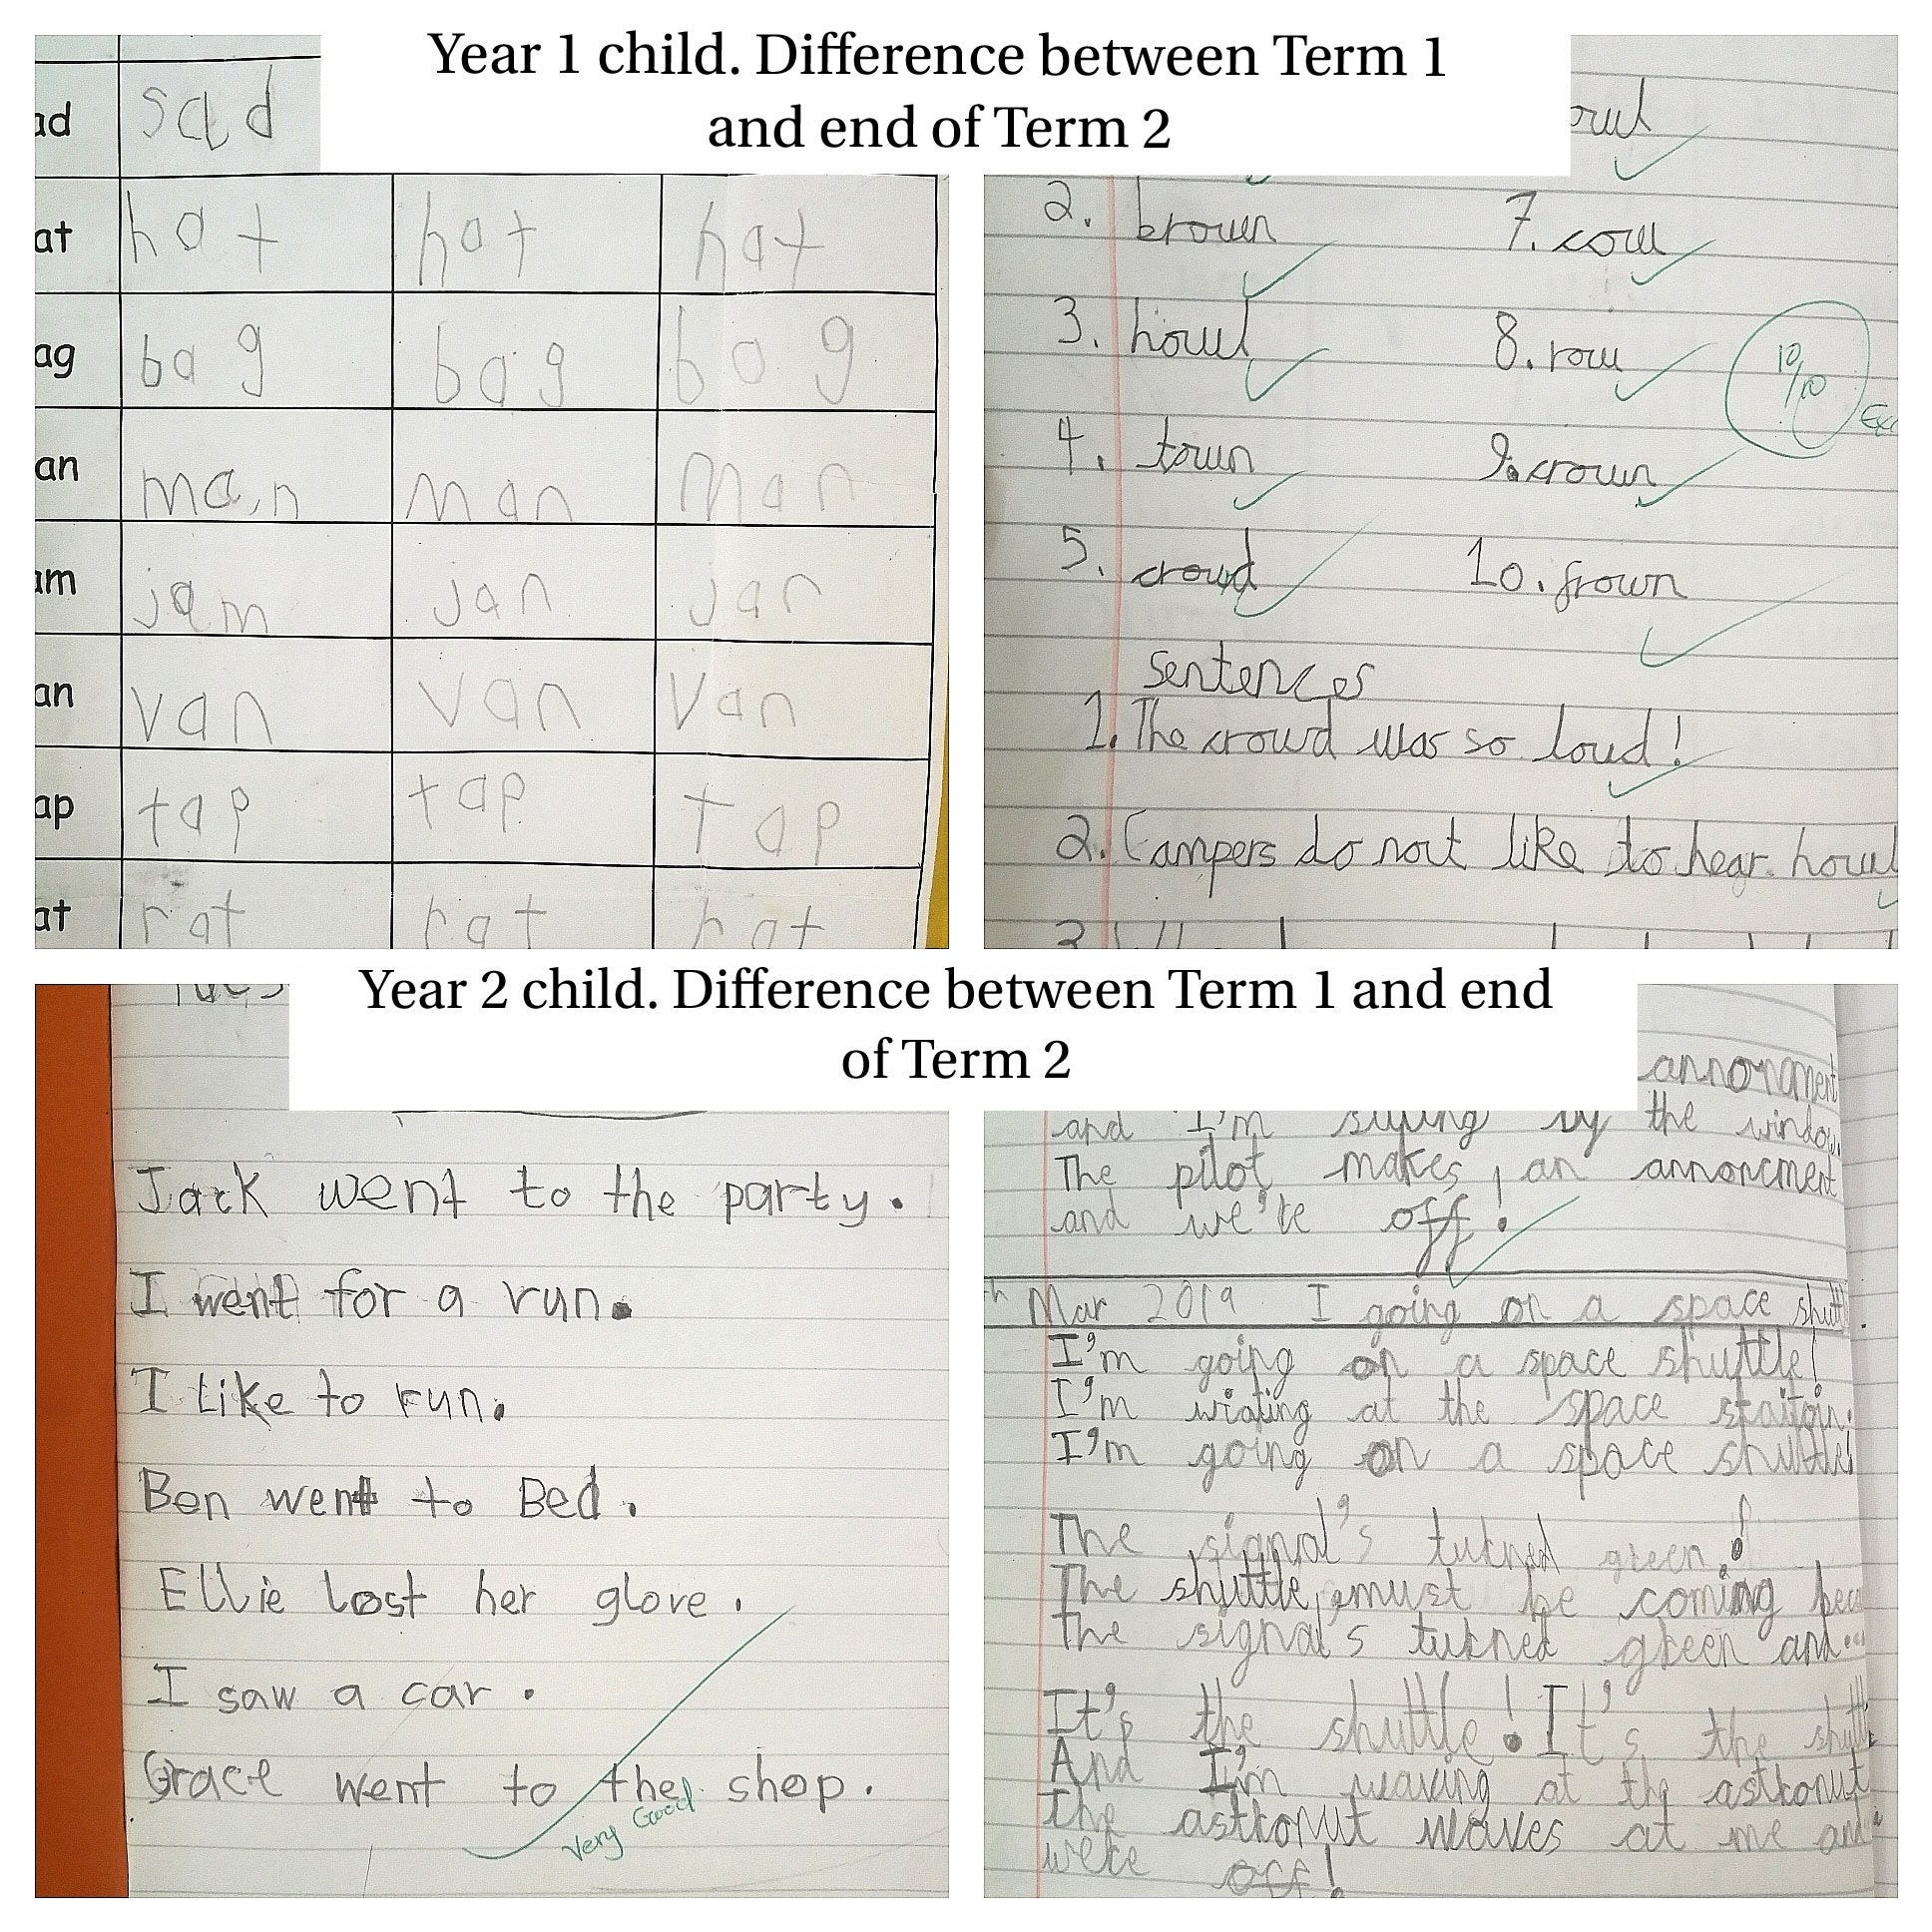 Year 1 child. Difference between Term 1
and end of Term 2
ad sad
at hat hat hat
ag bag bag bag
an man man man
am jam jan jan
an van van van
ap tap tap tap
at rat rat rat
2. brown 7. cow
3. howl 8. row 10/10
4. town 9. crown
5. crowd 10. frown
sentences
1. The crowd was so loud!
2. Campers do not like to hear howl
Year 2 child. Difference between Term 1 and end
of Term 2
Jack went to the party.
I went for a run.
I like to run.
Ben went to Bed.
Ellie lost her glove.
I saw a car.
Grace went to the shop.
Very Good
and I'm by the window.
The pilot makes an annoncment
and we're off!
Mar 2019 I going on a space shutt
I'm going on a space shuttle!
I'm wiating at the space staitoin.
I'm going on a space shuttle!
The signal's turned green!
The shuttle must be coming beca
The signal's turned green and...
It's the shuttle! It's the shuttl
And I'm weaving at the astronut
The astronut waves at me and
were off!